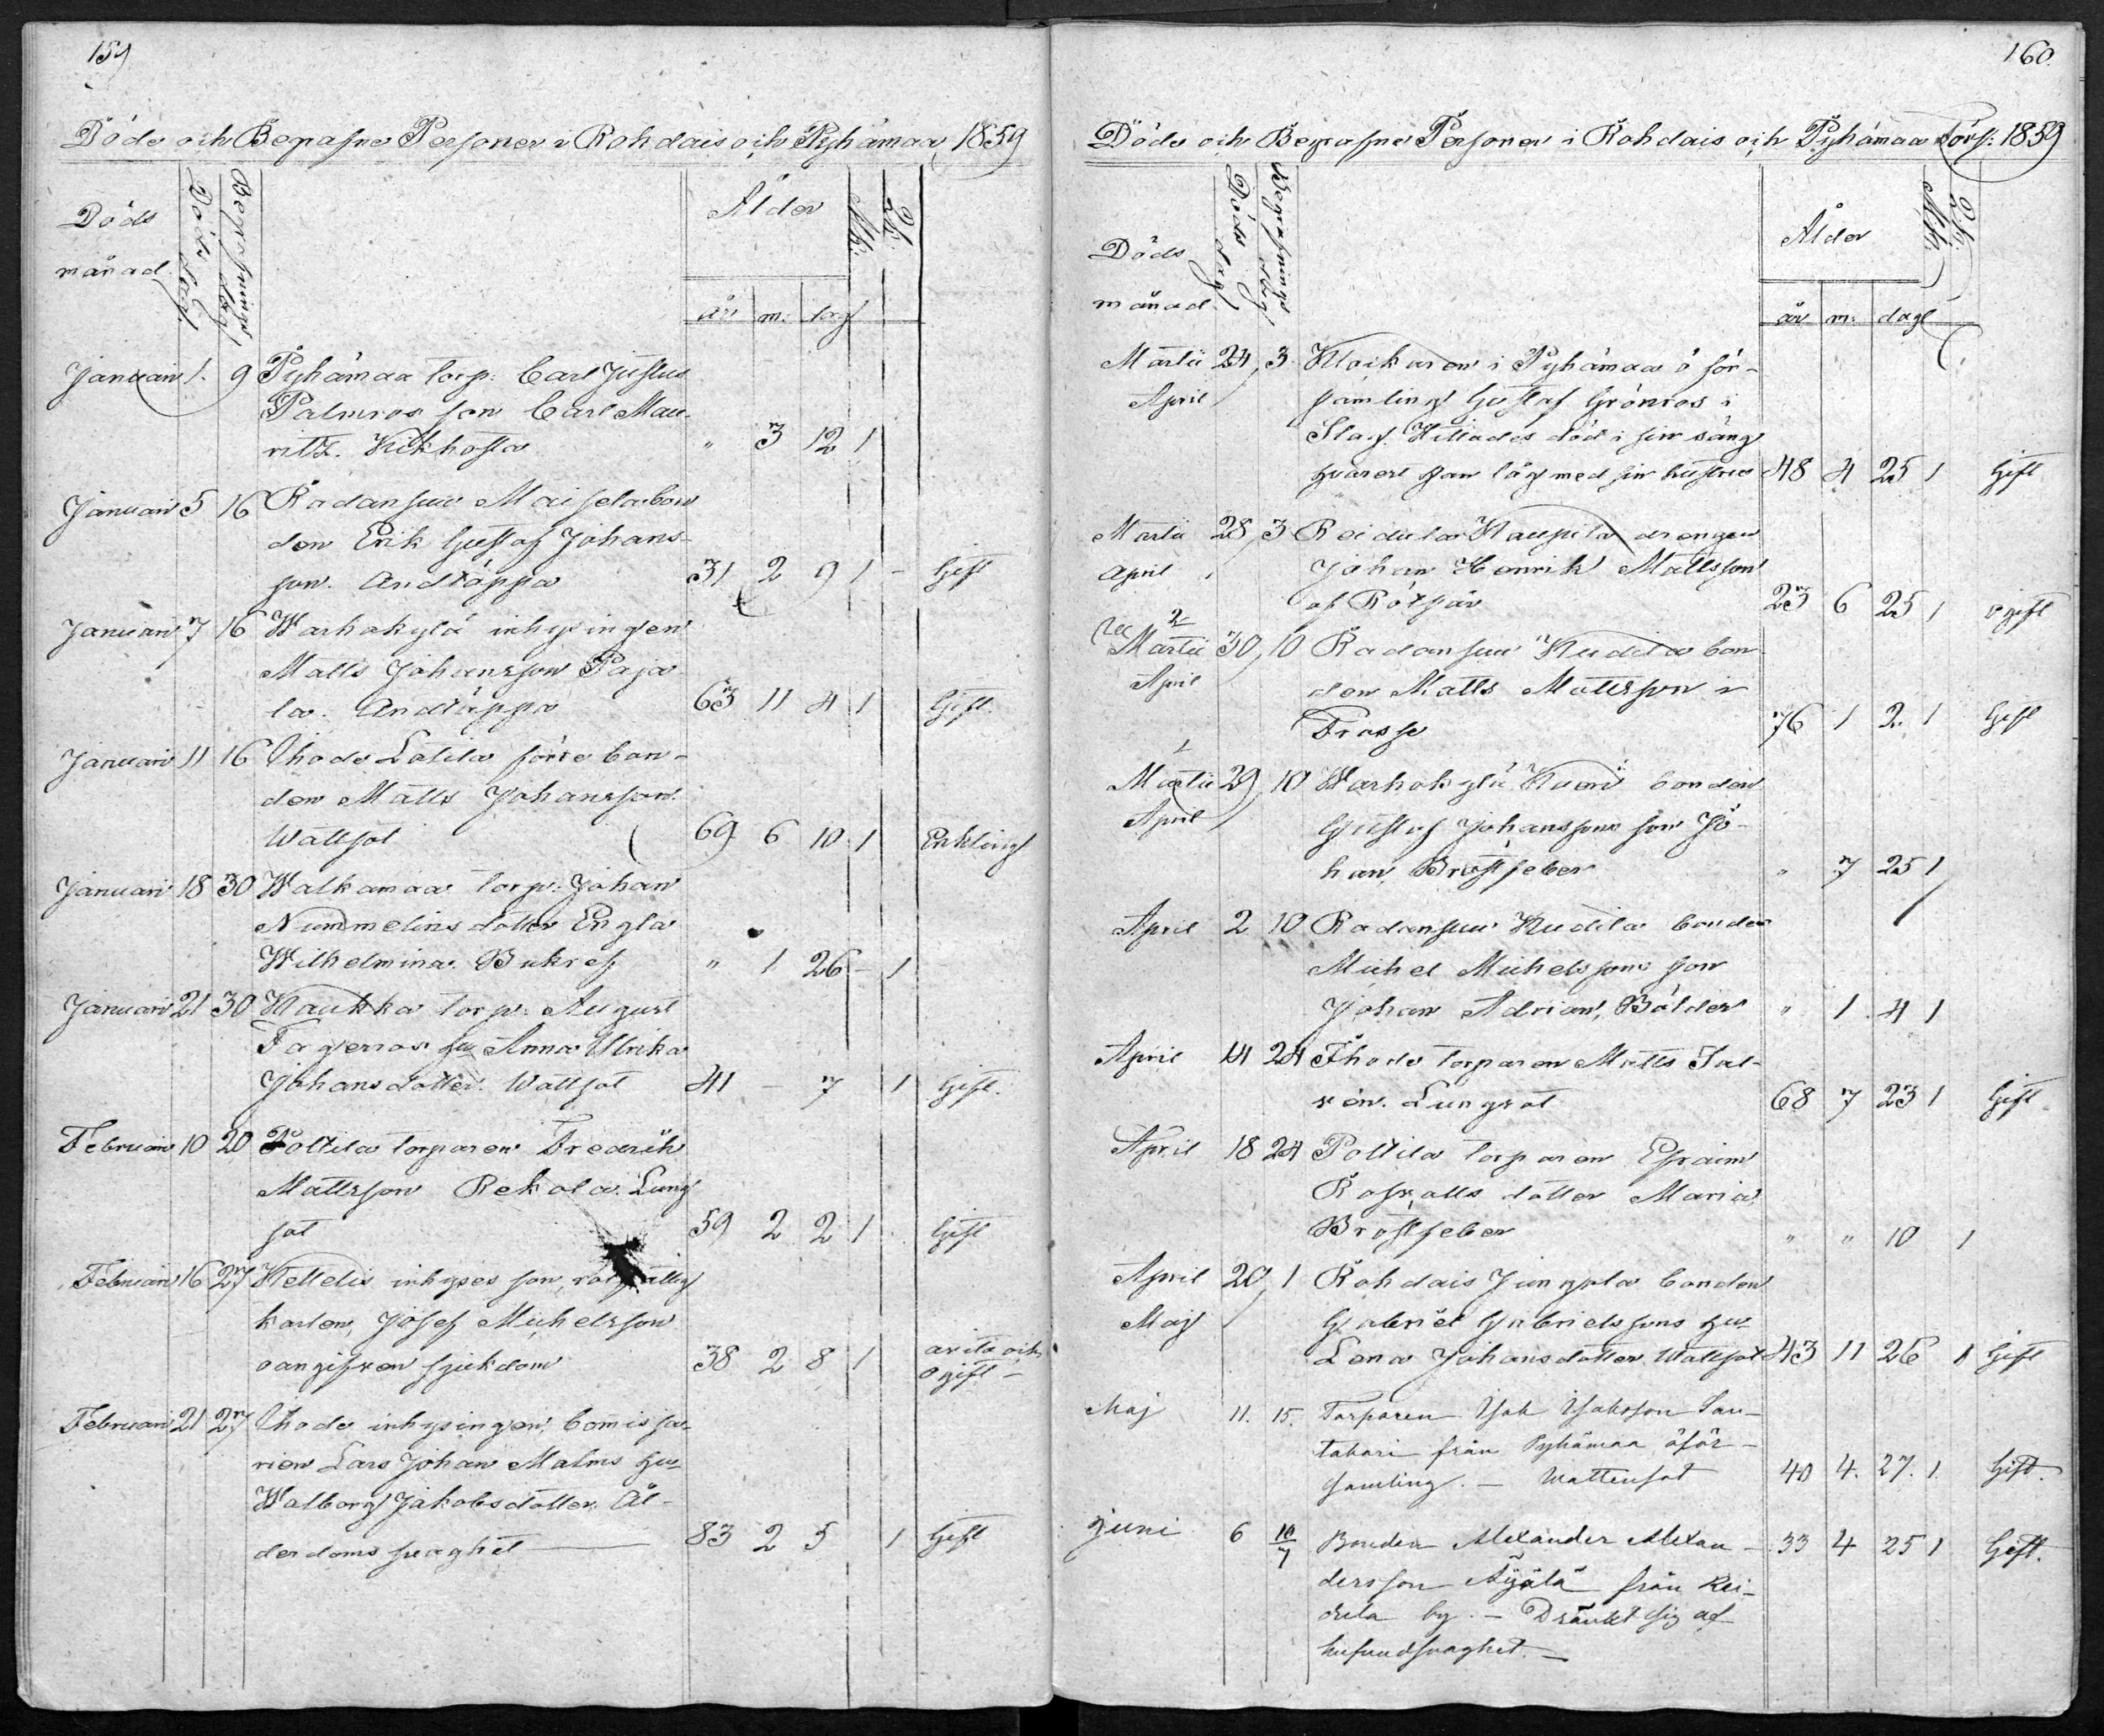 159
Döde och Begrafne Personer i Rohdais och Pyhämaa 1859
Döds månad. Döds dag. Begrafnings dag Ålder Mk: Qk:
år m: dag
Januari 1. 9 Pyhämaa torp: Carl Justus
Palmros son Carl Mau-
ritz. Kikhosta " 3 12 1
Januari 5 16 Radansuu Maisela bon
den Erik Gustaf Johans-
son. Andtäppa 31 2 9 1 - Gift
Januari 7 16 Warhokylä inhysingen
Matts Johansson Paja
la. Andtäppa 63 11 4 1 Gift.
Januari 11 16 Ihode Latila förre bon-
den Matts Johansson.
Wattsot 69 6 10 1 Enkling
Januari 18 30 Walkamaa torp: Johan
Nummelins dotter Engla
Wilhelmina. Bukref " 1 26 - 1
Januari 21 30 Kaukka torp: August
Fagerros hu Anna Ulrika
Johansdotter. Wattsot 41 - 7 1 Gift.
Februari 10 20 Poltila torparen Fredrik
Mattsson Rekola. Lung
sot 59 2 2 1 Gift
Februari 16 27 Kettelis inhyses son,
karlen, Josef Michelsson
oangifven sjukdom 38 2 8 1 och
ogift -
Februari 21 27 Ihode inhysingen, Comissa-
rien Lars Johan Malms hu
Walborg Jakobsdotter. Ål-
derdoms svaghet 83 2 5 1 Gift
160.
Döde och Begrafne Personer i Rohdais och Pyhämaa förs: 1859
Döds månad. Döds dag Begrafnings dag Ålder Mk: Qk:
år m: dagl
Martii 24 3 Klockaren i Pyhämaa ö för-
April samling Gustaf Grönroos i
Slag. Hittades död i sin säng
hvarest han låg med sin hustru 48 4 25 1 Gift
Martii 28 3 Reidula Kaupila drengen
April Johan Henrik Mattsson
af Rötfär 23 6 25 1 ogift
2
Martii 30 10 Radansuu Kudila bon
April den Matts Mattsson i
Frossa 76 1 2 1 Gift
1
Martii 29 10 Warhokylä bonden
April Gustaf Johanssons son Jo-
han Bröstfeber " 7 25 1
April 2 10 Radansuu Kudila bonden
Michel Michelssons son
Johan Adrian, Bölder " 1 4 1
April 14 24 Ihode torparen Matts Sal-
rén. Lungsot 68 7 23 1 Gift
April 18 24 Poltila torparen Efraim
dotter Maria,
Bröstfeber " " 10 1
April 20 1 Rohdais Jungola bonden
Maj Gabriel Gabrielssons hu
Lena Johansdotter Wattsot 43 11 26 1 Gift
Maj 11. 15. Torparen Isak Isaksson San-
takari från Pyhämaa öför-
samling. - Wattensot 40 4. 27. 1. Gift.
Juni 6 10/7 Bonden Alexander Alexan- 33 4 25 1 Gift.
dersson Äyälä från Rei-
dula by. - Dränkt sig af
hufvudsvaghet. -